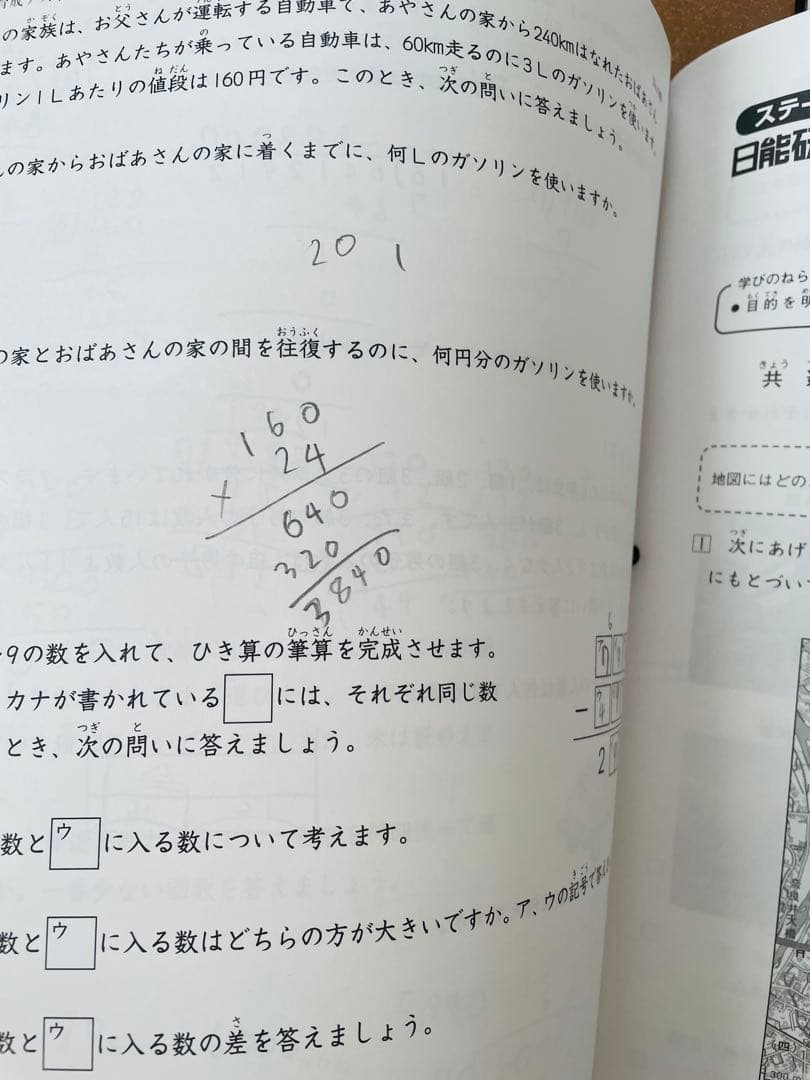 の家族は、お父さんが運転する自動車で、あやさんの家から240kmはなれたおばあさん
ます。あやさんたちが乗っている自動車は、60km走るのに3Lのガソリンを使います。
リン1Lあたりの値段は160円です。このとき、次の問いに答えましょう。
の家からおばあさんの家に着くまでに、何Lのガソリンを使いますか。
20 1
の家とおばあさんの家の間を往復するのに、何円分のガソリンを使いますか。
160
× 24
640
320
3840
9の数を入れて、ひき算の筆算を完成させます。
カナが書かれている□には、それぞれ同じ数
とき、次の問いに答えましょう。
6
−
2
数とウに入る数について考えます。
数とウに入る数はどちらの方が大きいですか。ア、ウの記号で答え
数とウに入る数の差を答えましょう。
ステー
日能研
学びのねら
●目的を明
共
地図にはどの
1 次にあげ
にもとづい
奈良井大橋
(四)
300m